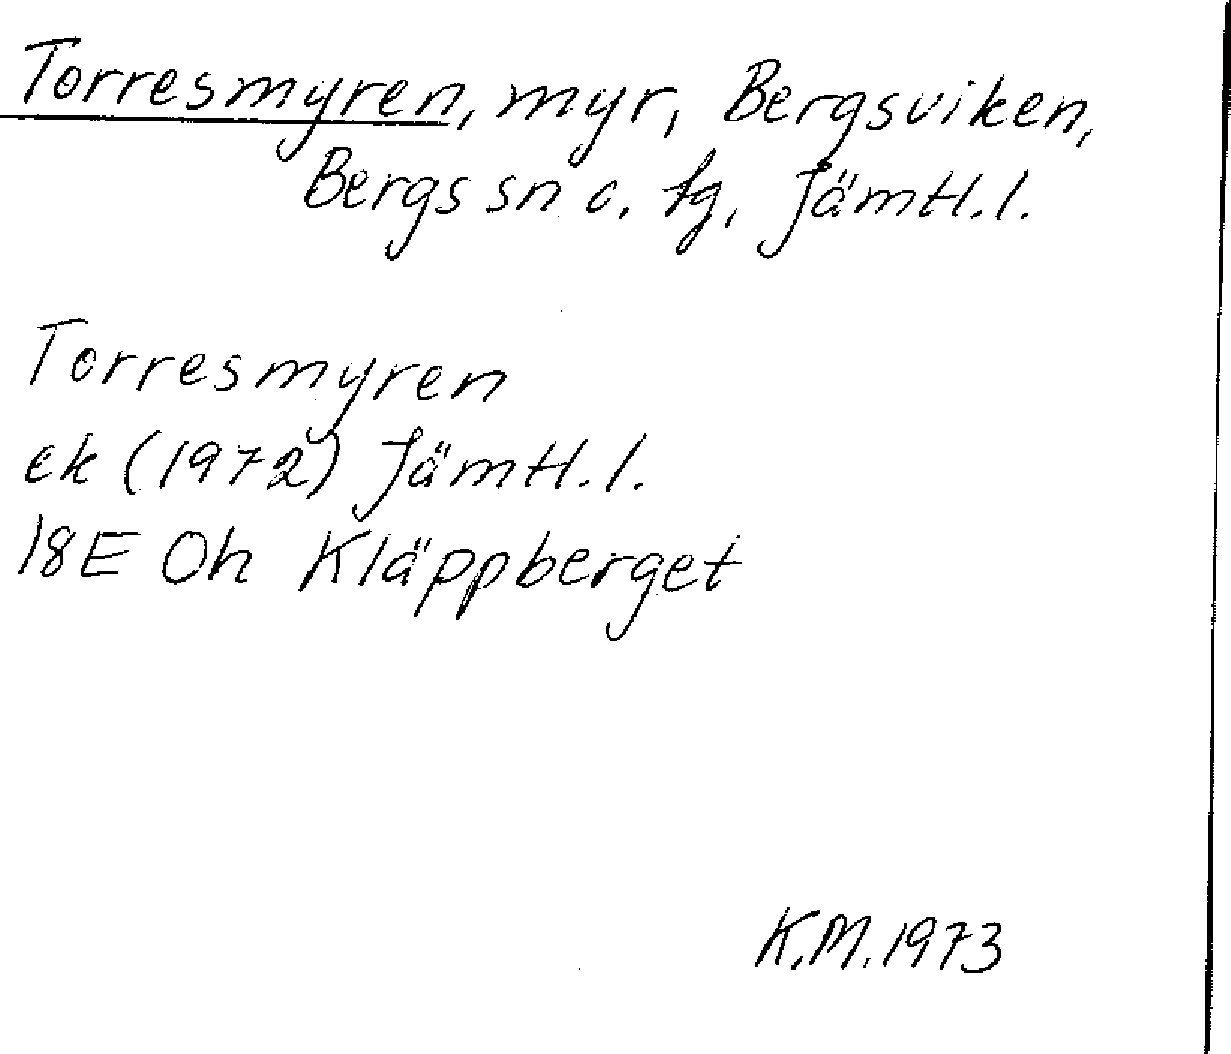 Torresmyren, myr, Bergsviken,
Bergs sn o. tg, Jämtl. l.
Torresmyren
ek (1972) Jämtl. l.
18E 0h Kläppberget
K.M. 1973